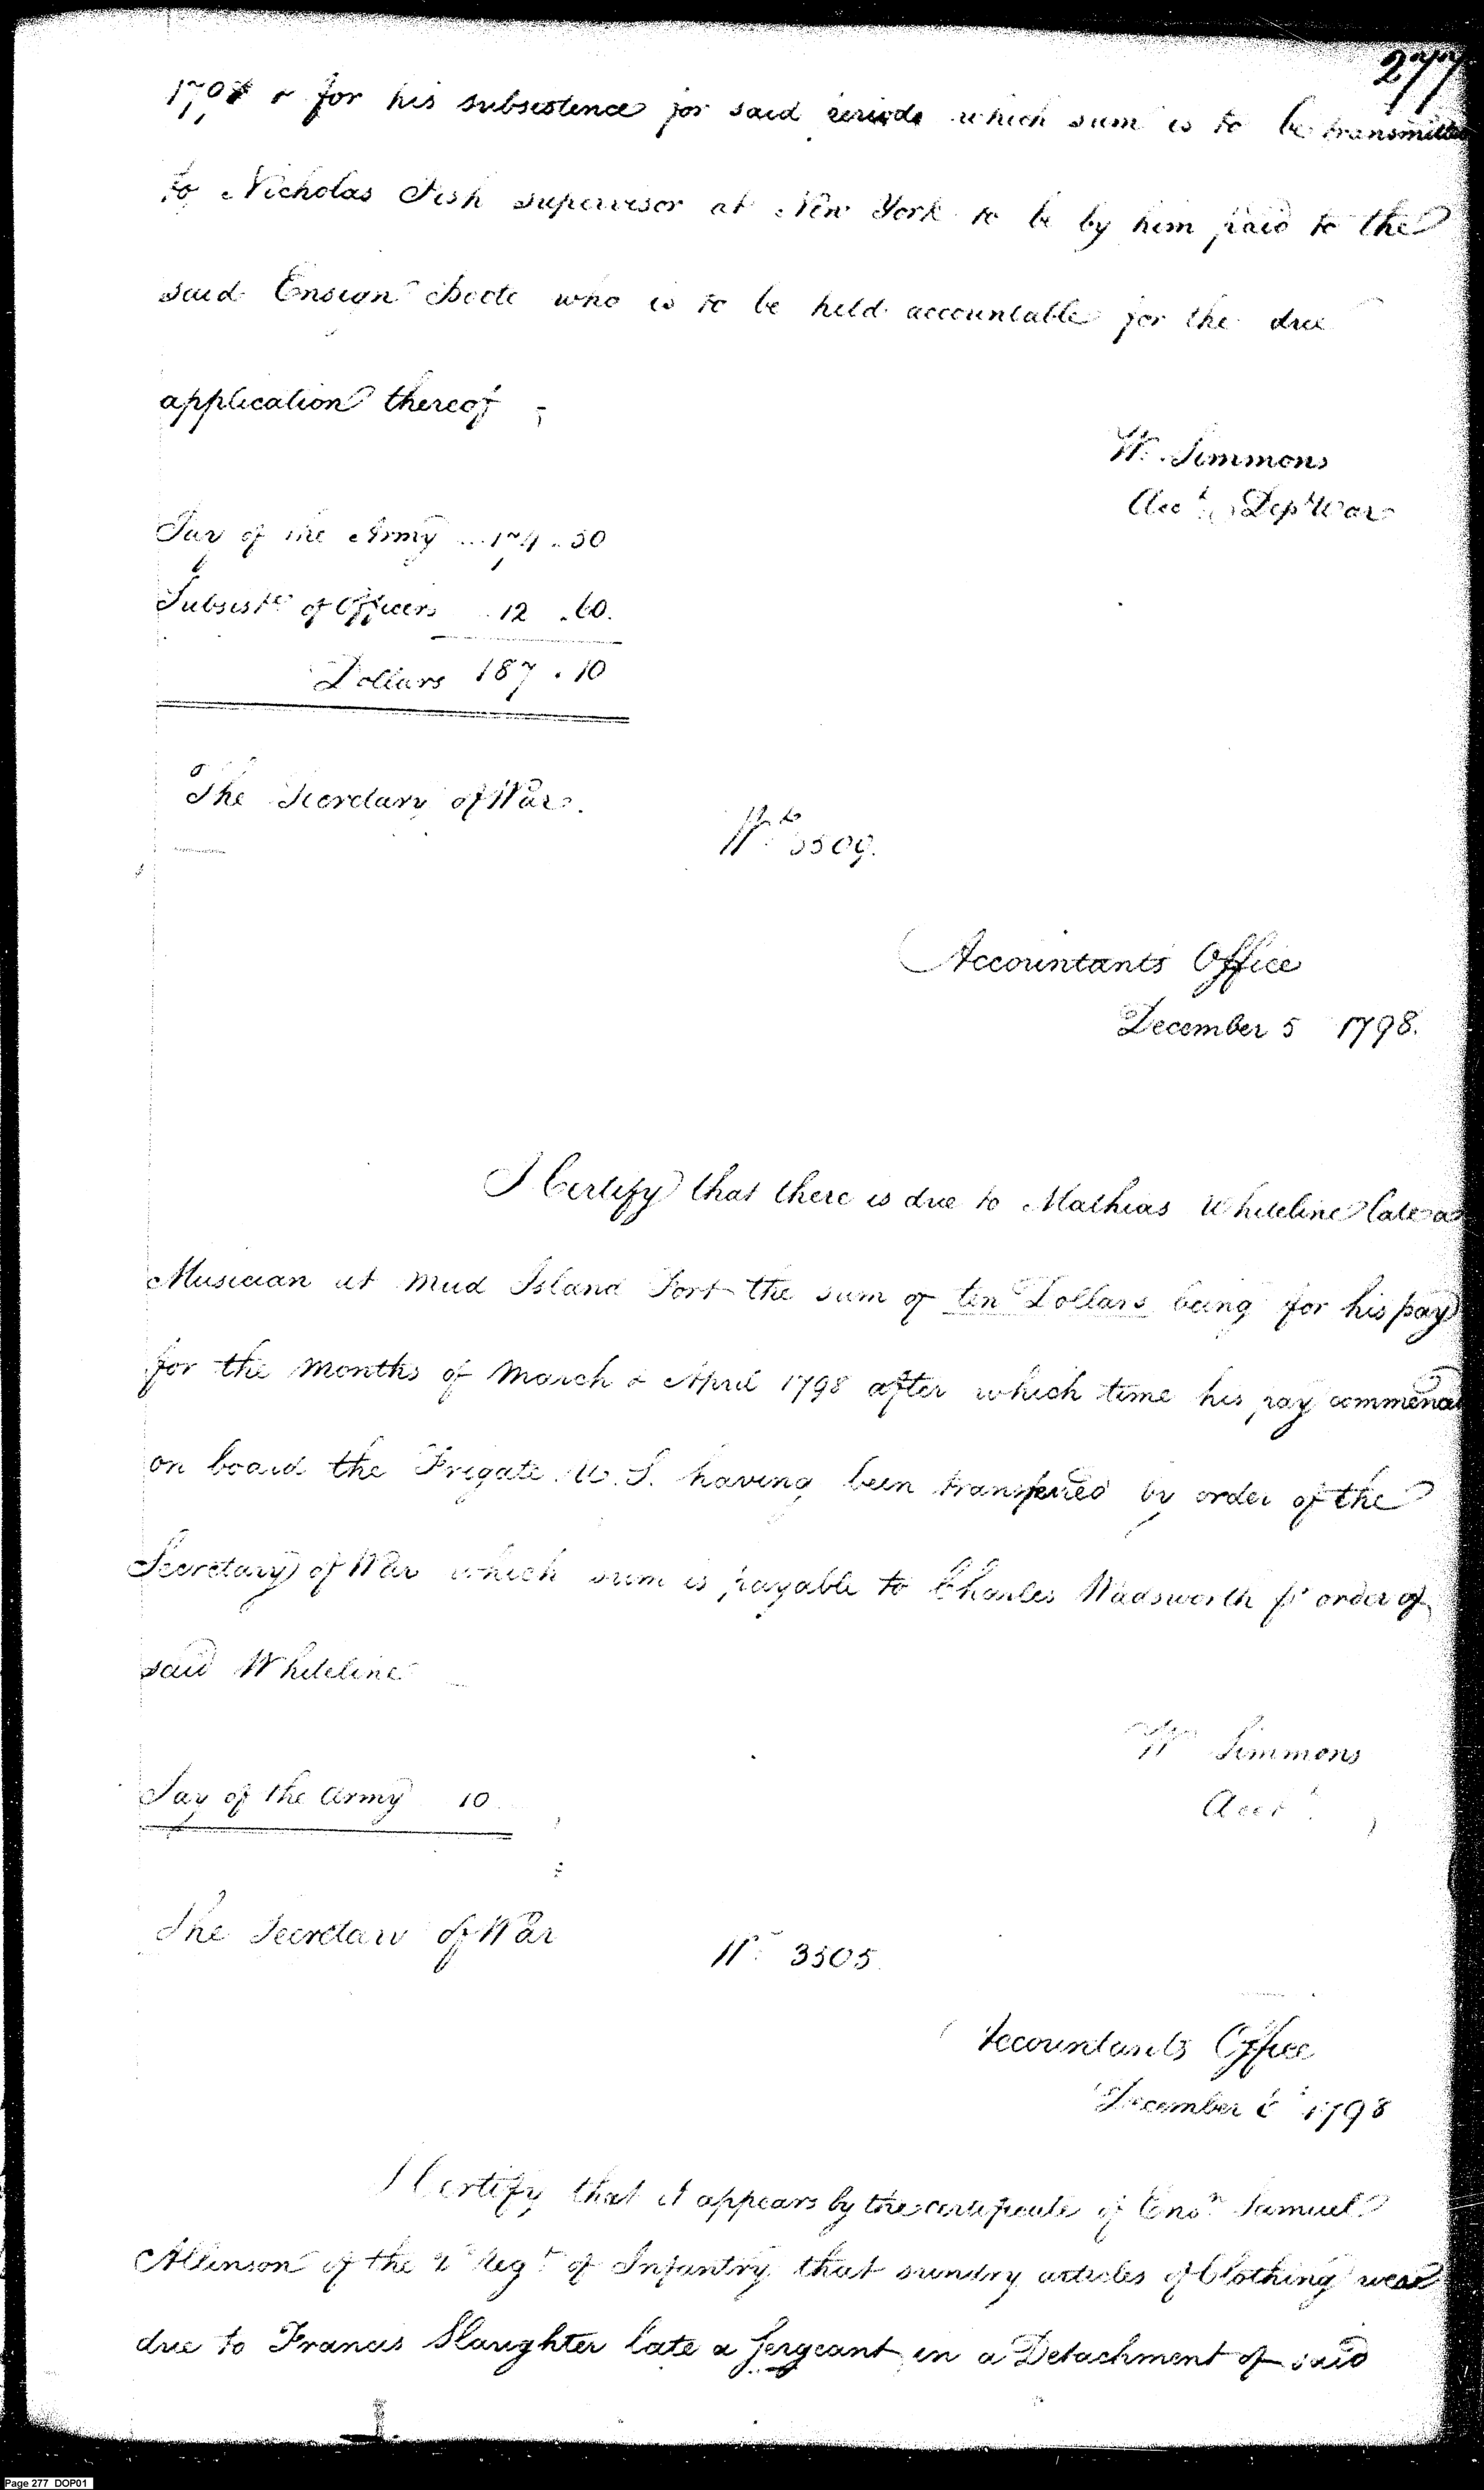 277
1798 & for his subsistence for said periods which sum is to be transmitted
to Nicholas Fish supervisor at New York to be by him paid to the
said Ensign who is to be held accountable for the due
application thereof
W. Simmons
Acct. Dept War
Pay of the Army ... 174 . 50
Subsistce of Officers .. 12 . 60.
Dollars 187 . 10
The Secretary of War.
No 3509.
Accountants Office
December 5 1798.
I Certify that there is due to Mathias Whiteline late a
Musician at Mud Island Fort the sum of ten Dollars being for his pay
for the months of March & April 1798 after which time his pay commenced
on board the Frigate U. S. having been transfered by order of the
Secretary of War which sum is payable to Charles Wadsworth pr order of
said Whiteline
Wm Simmons
Acct.
Pay of the Army 10
The Secretary of War
No 3505
Accountants Office
December 1798
I Certify that it appears by the certificate of Ensn Samuel
Allinson of the 2d Regt of Infantry that sundry articles of Clothing were
due to Francis Slaughter late a Sergeant in a Detachment of said
Page 277 DOP01